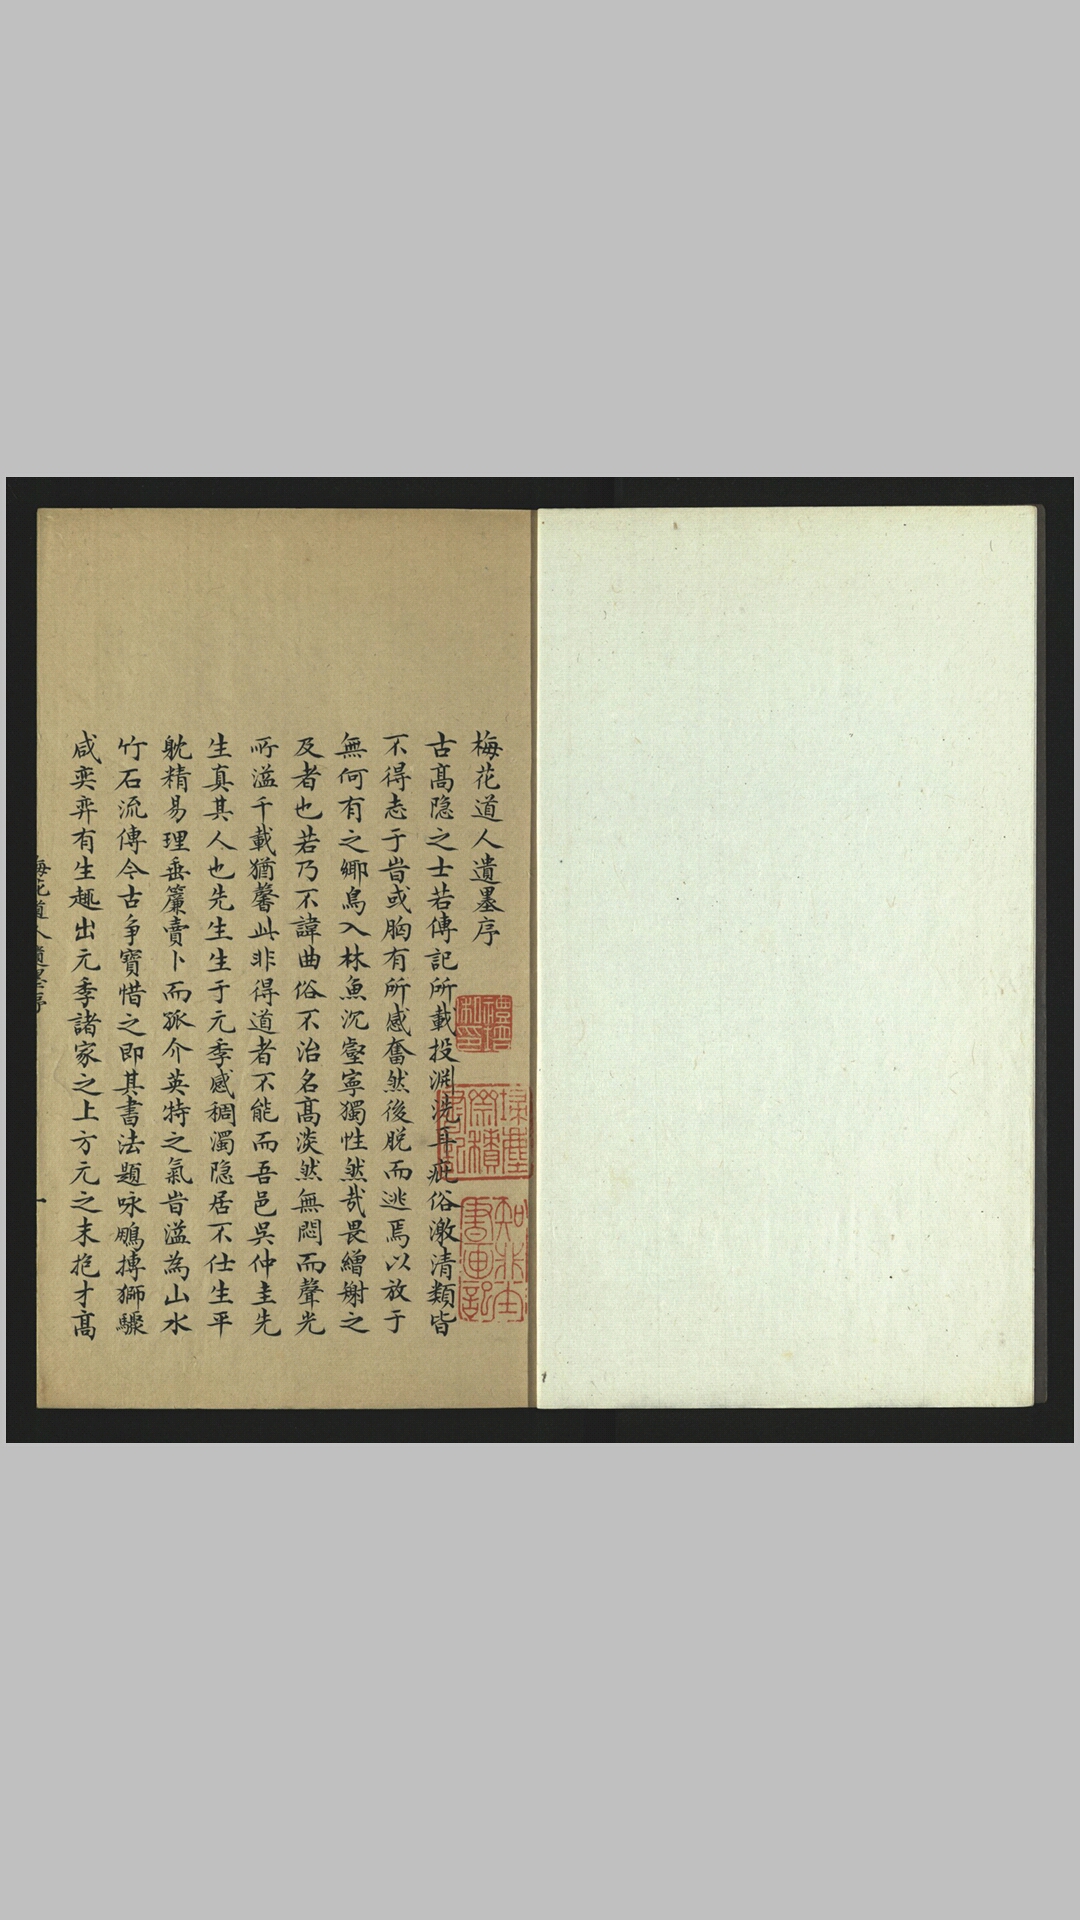 梅花道人遺墨序
古髙隐之士若傳記所載投淵洗耳疵俗激清類皆
不得志于旹或胸有所感奮然後脱而逃焉以放于
無何有之鄉鳥入林魚沉壑寧獨性然㦲畏繒䠶之
及者也若乃不諱曲俗不治名髙淡然無悶而聲光
所溢千載猶馨此非得道者不能而吾邑吳仲圭先
生真其人也先生生于元季感稠濁隐居不仕生平
躭精易理垂簾賣卜而孤介英特之氣旹溢為山水
竹石流傳今古爭寶惜之即其書法題咏鵰搏獅驟
咸奕奕有生趣出元季諸家之上方元之末抱才髙
梅花道人遺墨序
一